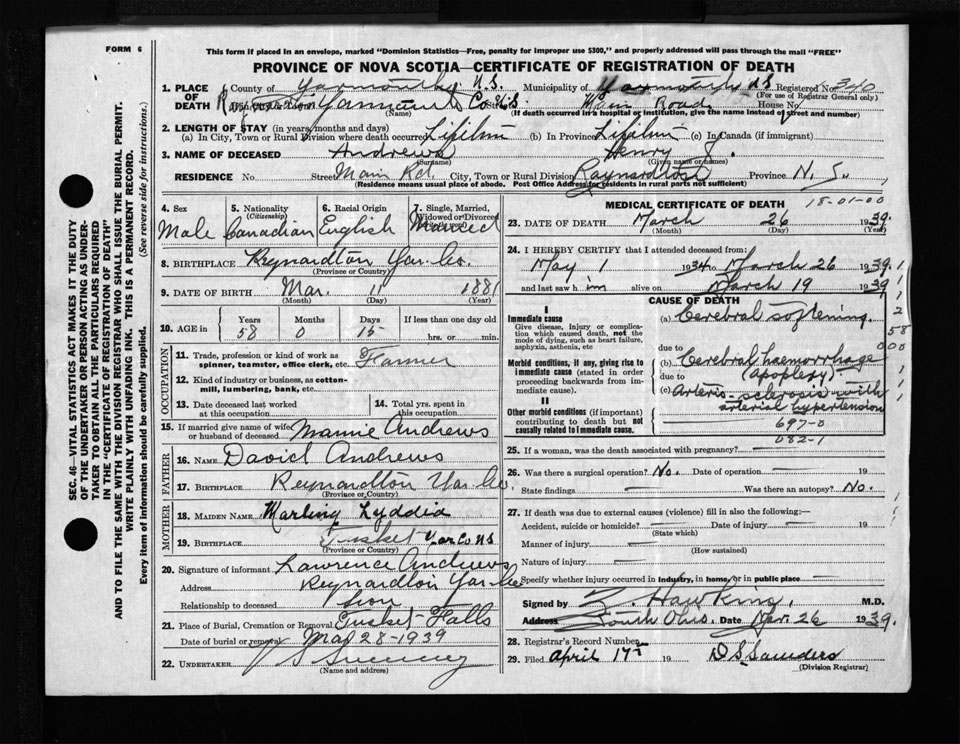 FORM 6
This form if placed in an envelope, marked "Dominion Statistics—Free, penalty for improper use $300," and properly addressed will pass through the mail "FREE"
PROVINCE OF NOVA SCOTIA—CERTIFICATE OF REGISTRATION OF DEATH
SEC. 46—VITAL STATISTICS ACT MAKES IT THE DUTY
OF THE UNDERTAKER OR PERSON ACTING AS UNDER-
TAKER TO OBTAIN ALL THE PARTICULARS REQUIRED
IN THE "CERTIFICATE OF REGISTRATION OF DEATH"
AND TO FILE THE SAME WITH THE DIVISION REGISTRAR WHO SHALL ISSUE THE BURIAL PERMIT.
WRITE PLAINLY WITH UNFADING INK. THIS IS A PERMANENT RECORD.
Every item of information should be carefully supplied. (See reverse side for instructions.)
1. PLACE OF DEATH County of Yarmouth N.S. Municipality of Yarmouth N.S. Registered No.
(For use of Registrar General only)
Yarmouth Co. N.S. Main Road House No.
(Name) (If death occurred in a hospital or institution, give the name instead of street and number)
2. LENGTH OF STAY (in years, months and days)
(a) In City, Town or Rural Division where death occurred Lifetime (b) In Province Lifetime (c) In Canada (if immigrant)
3. NAME OF DECEASED Andrews Henry J.
(Surname) (Given name or names)
RESIDENCE No. Street Main Rd. City, Town or Rural Division Raynardton Province N. S.
(Residence means usual place of abode. Post Office Address for residents in rural parts not sufficient)
4. Sex Male
5. Nationality (Citizenship) Canadian
6. Racial Origin English
7. Single, Married, Widowed or Divorced Married
8. BIRTHPLACE Reynardton Yar. Co.
(Province or Country)
9. DATE OF BIRTH Mar. 11 1881
(Month) (Day) (Year)
10. AGE in Years 58 Months 0 Days 15 If less than one day old
hrs. or min.
OCCUPATION
11. Trade, profession or kind of work as spinner, teamster, office clerk, etc. Farmer
12. Kind of industry or business, as cotton-mill, lumbering, bank, etc.
13. Date deceased last worked at this occupation
14. Total yrs. spent in this occupation
15. If married give name of wife or husband of deceased Mamie Andrews
FATHER
16. NAME David Andrews
17. BIRTHPLACE Reynardton Yar. Co.
(Province or Country)
MOTHER
18. MAIDEN NAME Marling Lyddia
19. BIRTHPLACE Tusket Yar Co N S
(Province or Country)
20. Signature of informant Lawrence Andrews
Address Reynardton Yar. Co
Relationship to deceased Son
21. Place of Burial, Cremation or Removal Tusket Falls
Date of burial or removal Mar 28-1939
22. UNDERTAKER Sweeney
(Name and address)
MEDICAL CERTIFICATE OF DEATH
18-01-00
23. DATE OF DEATH March 26 1939.
(Month) (Day) (Year)
24. I HEREBY CERTIFY that I attended deceased from:
May 1 1934 to March 26 1939.
and last saw him alive on March 19 1939
CAUSE OF DEATH
Immediate cause
Give disease, injury or complication which caused death, not the mode of dying, such as heart failure, asphyxia, asthenia, etc
(a) Cerebral softening.
due to
Morbid conditions, if any, giving rise to immediate cause (stated in order proceeding backwards from immediate cause).
(b) Cerebral haemorrhage (apoplexy).
due to
(c) Arterio-sclerosis with arterial hypertension
II
Other morbid conditions (if important) contributing to death but not causally related to immediate cause.
697-0
082-1
25. If a woman, was the death associated with pregnancy?
26. Was there a surgical operation? No. Date of operation 19
State findings Was there an autopsy? No.
27. If death was due to external causes (violence) fill in also the following:—
Accident, suicide or homicide? Date of injury 19
(State which)
Manner of injury
(How sustained)
Nature of injury
Specify whether injury occurred in industry, in home, or in public place
Signed by Z. Hawkins, M.D.
Address South Ohio. Date Mar. 26 1939.
28. Registrar's Record Number
29. Filed April 17 19 D S Saunders
(Division Registrar)